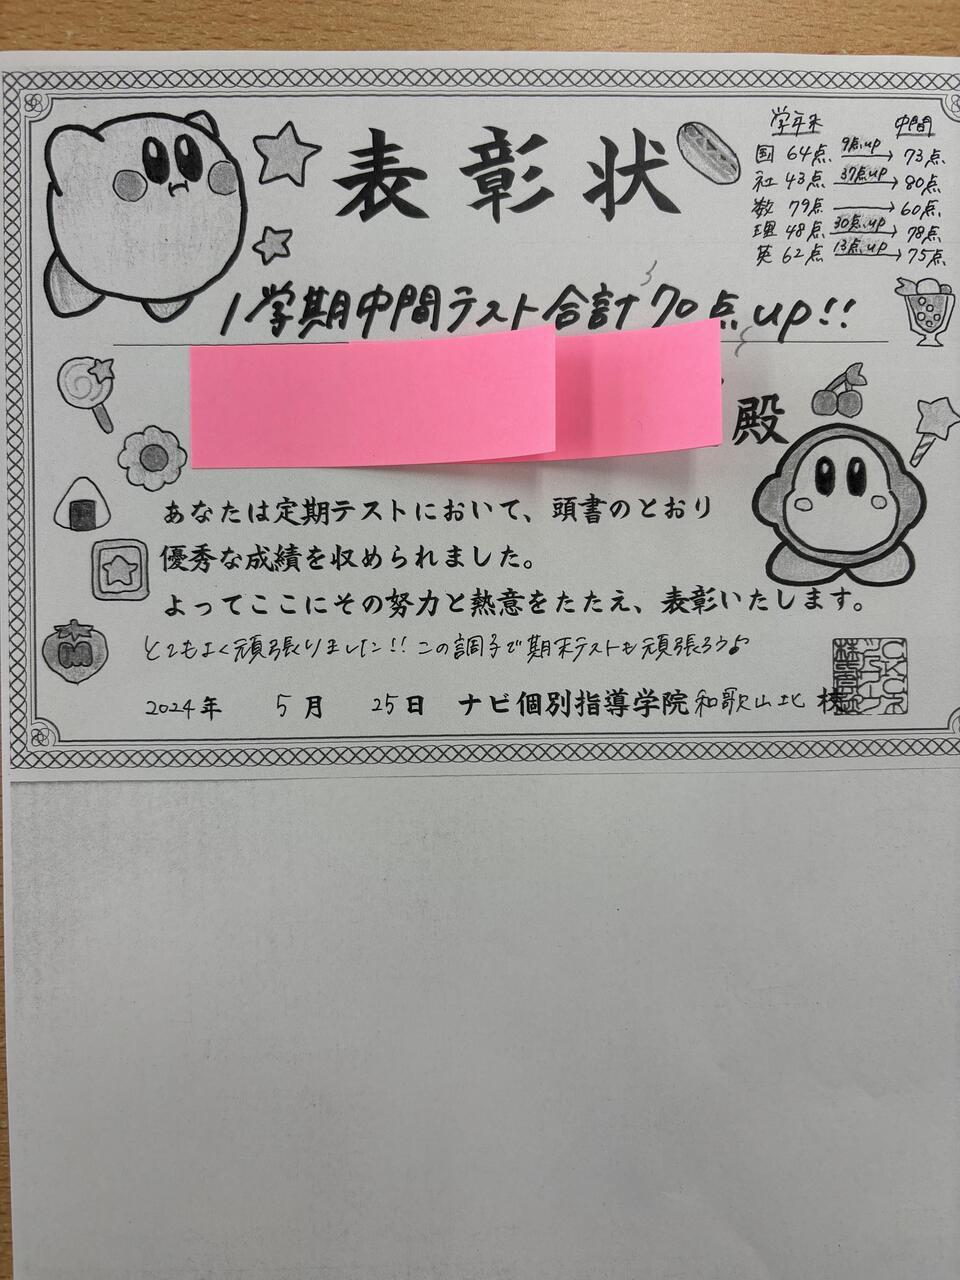 表彰状
学年末 中間
国 64点 9点up 73点
社 43点 37点up 80点
数 79点 60点
理 48点 30点up 78点
英 62点 13点up 75点
1学期中間テスト合計70点up!!
殿
あなたは定期テストにおいて、頭書のとおり
優秀な成績を収められました。
よってここにその努力と熱意をたたえ、表彰いたします。
とてもよく頑張りました!!この調子で期末テストも頑張ろう♪
M
2024年 5月 25日 ナビ個別指導学院 和歌山北 校